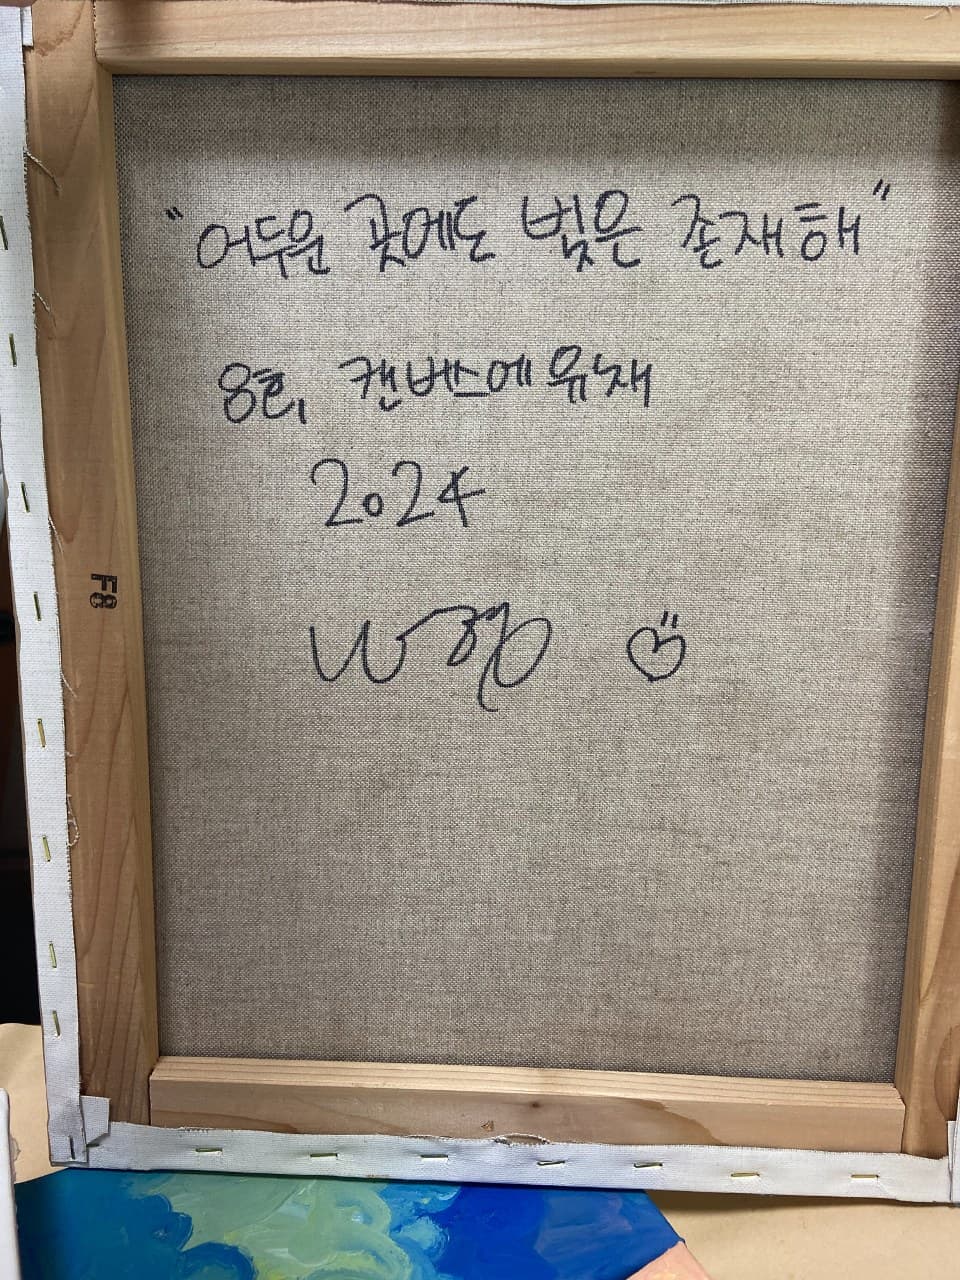 "어두운 곳에도 빛은 존재해"
8호, 캔버스에 유채
2024
F8